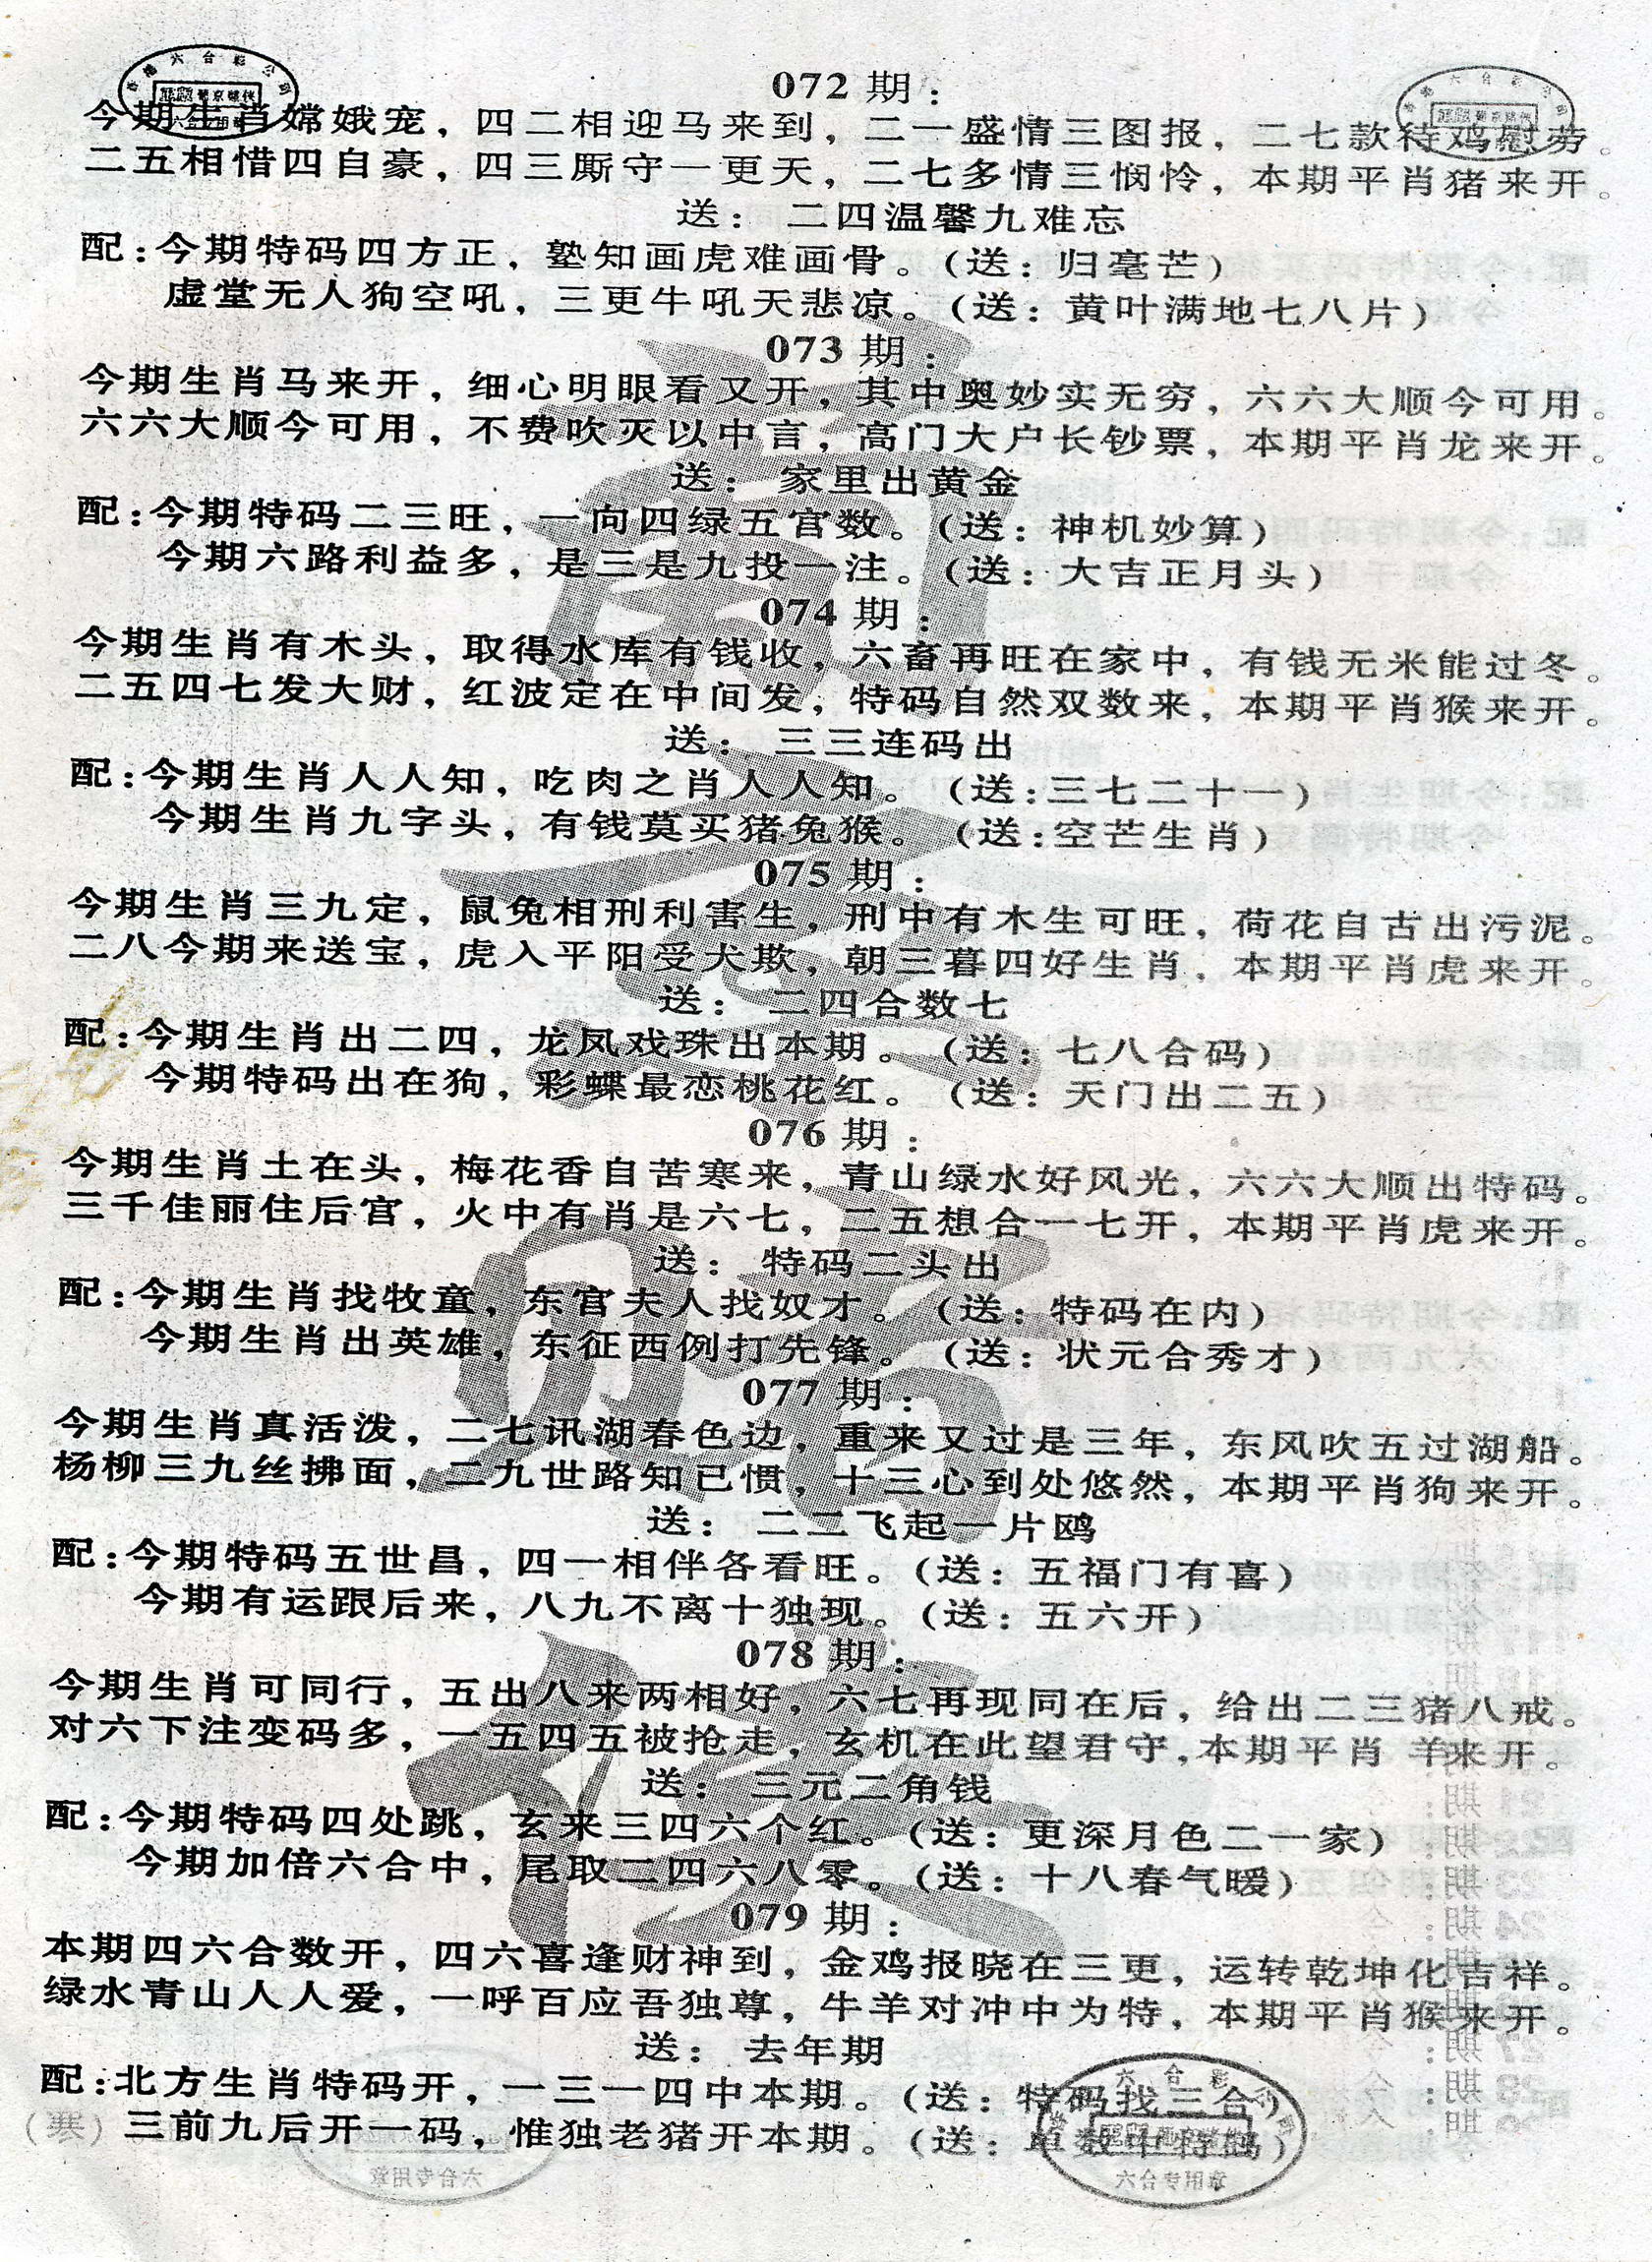 072期：
今期生肖嫦娥宠，四二相迎马来到，二一盛情三图报，二七款待鸡慰劳。
二五相惜四自豪，四三厮守一更天，二七多情三悯怜，本期平肖猪来开。
送：二四温馨九难忘
配：今期特码四方正，塾知画虎难画骨。（送：归毫芒）
虚堂无人狗空吼，三更牛吼天悲凉。（送：黄叶满地七八片）
073期：
今期生肖马来开，细心明眼看又开，其中奥妙实无穷，六六大顺今可用。
六六大顺今可用，不费吹灭以中言，高门大户长钞票，本期平肖龙来开。
送：家里出黄金
配：今期特码二三旺，一向四绿五宫数。（送：神机妙算）
今期六路利益多，是三是九投一注。（送：大吉正月头）
074期：
今期生肖有木头，取得水库有钱收，六畜再旺在家中，有钱无米能过冬。
二五四七发大财，红波定在中间发，特码自然双数来，本期平肖猴来开。
送：三三连码出
配：今期生肖人人知，吃肉之肖人人知。（送：三七二十一）
今期生肖九字头，有钱莫买猪兔猴。（送：空芒生肖）
075期：
今期生肖三九定，鼠兔相刑利害生，刑中有木生可旺，荷花自古出污泥。
二八今期来送宝，虎入平阳受犬欺，朝三暮四好生肖，本期平肖虎来开。
送：二四合数七
配：今期生肖出二四，龙凤戏珠出本期。（送：七八合码）
今期特码出在狗，彩蝶最恋桃花红。（送：天门出二五）
076期：
今期生肖土在头，梅花香自苦寒来，青山绿水好风光，六六大顺出特码。
三千佳丽住后宫，火中有肖是六七，二五想合一七开，本期平肖虎来开。
送：特码二头出
配：今期生肖找牧童，东官夫人找奴才。（送：特码在内）
今期生肖出英雄，东征西例打先锋。（送：状元合秀才）
077期：
今期生肖真活泼，二七讯湖春色边，重来又过是三年，东风吹五过湖船。
杨柳三九丝拂面，二九世路知已惯，十三心到处悠然，本期平肖狗来开。
送：二二飞起一片鸥
配：今期特码五世昌，四一相伴各看旺。（送：五福门有喜）
今期有运跟后来，八九不离十独现。（送：五六开）
078期：
今期生肖可同行，五出八来两相好，六七再现同在后，给出二三猪八戒。
对六下注变码多，一五四五被抢走，玄机在此望君守，本期平肖羊来开。
送：三元二角钱
配：今期特码四处跳，玄来三四六个红。（送：更深月色二一家）
今期加倍六合中，尾取二四六八零。（送：十八春气暖）
079期：
本期四六合数开，四六喜逢财神到，金鸡报晓在三更，运转乾坤化吉祥。
绿水青山人人爱，一呼百应吾独尊，牛羊对冲中为特，本期平肖猴来开。
送：去年期
配：北方生肖特码开，一三一四中本期。（送：特码找三合）
（寒）三前九后开一码，惟独老猪开本期。（送：单数中特码）
六合专用章